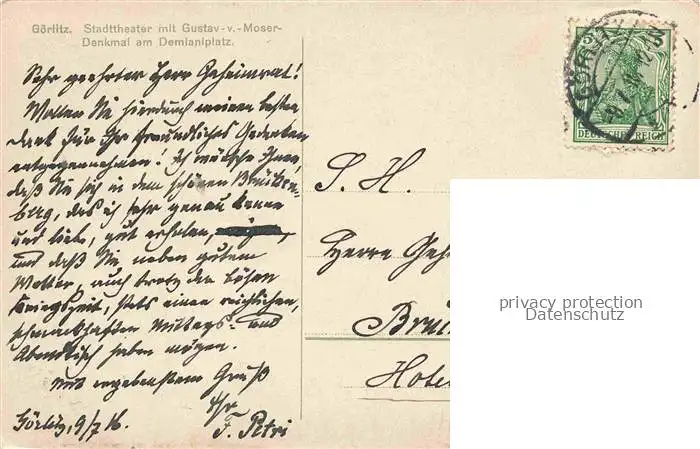 Görlitz. Stadttheater mit Gustav-v.-Moser-
Denkmal am Demianiplatz.
Sehr geehrter Herr Geheimrat!
Wollen Sie hierdurch meinen besten
Dank für Ihr freundliches Gedenken
entgegennehmen! Ich wünsche Ihnen,
daß Sie sich in dem schönen Brücken-
berg, das ich sehr genau kenne
und liebe, gut erholen,
und daß Sie neben gutem
Wetter, auch trotz der bösen
Kriegszeit, stets einen reichlichen,
schmackhaften Mittags- und
Abendtisch haben mögen.
Mit ergebenstem Gruß
Ihr
F. Petri
Görlitz, 9/7 16.
S. H.
Herrn Geh
Brü
Hote
DEUTSCHES REICH
5
privacy protection
Datenschutz